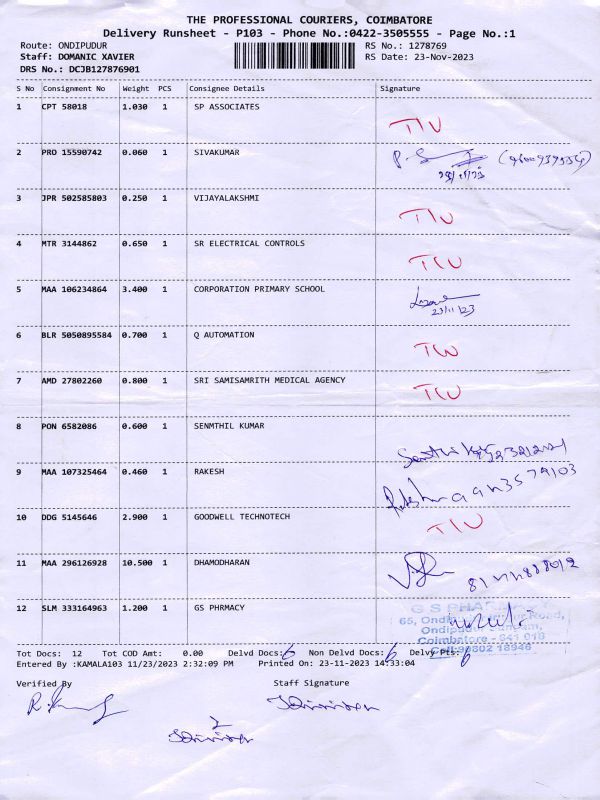 THE PROFESSIONAL COURIERS, COIMBATORE
Delivery Runsheet - P103 - Phone No.:0422-3505555 - Page No.:1
Route: ONDIPUDUR RS No.: 1278769
Staff: DOMANIC XAVIER RS Date: 23-Nov-2023
DRS No.: DCJB127876901
S No Consignment No Weight PCS Consignee Details Signature
1 CPT 58018 1.030 1 SP ASSOCIATES
2 PRO 15590742 0.060 1 SIVAKUMAR
3 JPR 502585803 0.250 1 VIJAYALAKSHMI
4 MTR 3144862 0.650 1 SR ELECTRICAL CONTROLS
5 MAA 106234864 3.400 1 CORPORATION PRIMARY SCHOOL
23/11/23
6 BLR 5050895584 0.700 1 Q AUTOMATION
7 AMD 27802260 0.800 1 SRI SAMISAMRITH MEDICAL AGENCY
8 PON 6582086 0.600 1 SENMTHIL KUMAR
9 MAA 107325464 0.460 1 RAKESH
10 DDG 5145646 2.900 1 GOODWELL TECHNOTECH
11 MAA 296126928 10.500 1 DHAMODHARAN
12 SLM 333164963 1.200 1 GS PHRMACY
G S PHARMACY
Coimbatore - 641 016
Tot Docs: 12 Tot COD Amt: 0.00 Delvd Docs: 6 Non Delvd Docs: 6 Delvy Pts: 6
Entered By :KAMALA103 11/23/2023 2:32:09 PM Printed On: 23-11-2023 14:33:04
Verified By Staff Signature